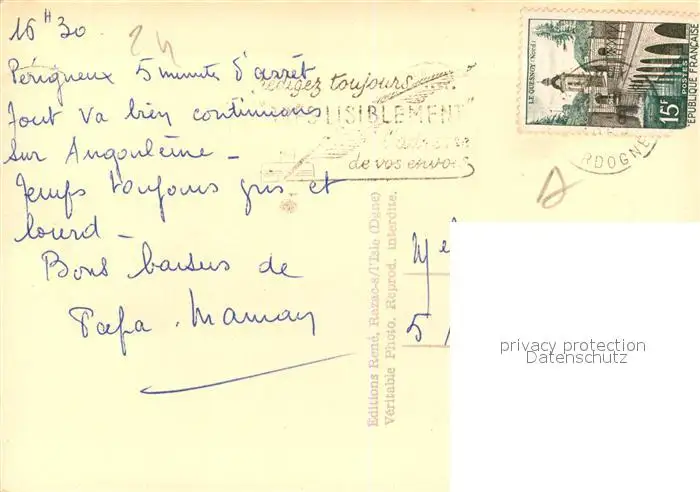 16 H 30
24
Périgueux 5 minutes d'arrêt
tout va bien continuons
sur Angoulême -
Temps toujours gris et
lourd -
Bons baisers de
Papa. Maman
Rédigez toujours
LISIBLEMENT"
l'adresse
de vos envois
LE QUESNOY (NORD)
15F
POSTES
REPUBLIQUE FRANÇAISE
RDOGNE
Editions René, Razac-s/l'Isle (Dgne)
Véritable Photo. Reprod. interdite.
5
privacy protection
Datenschutz